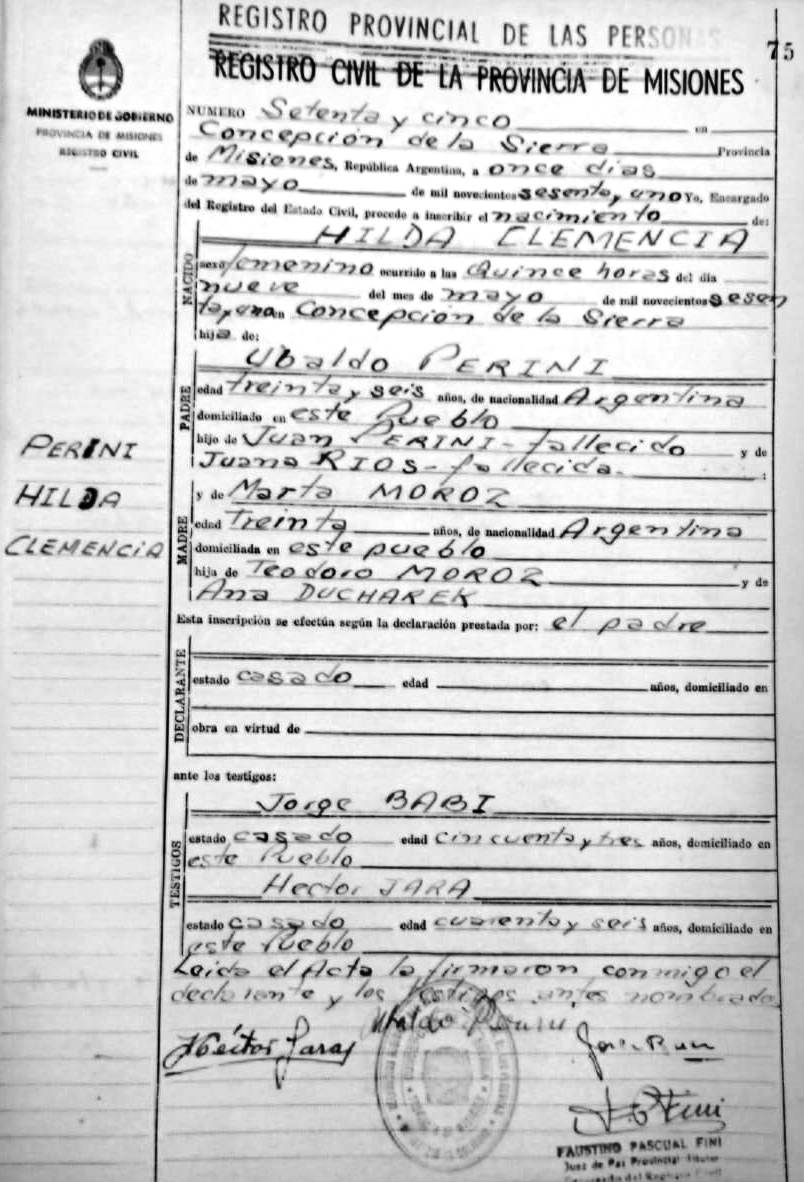 REGISTRO PROVINCIAL DE LAS PERSONAS
75
REGISTRO CIVIL DE LA PROVINCIA DE MISIONES
MINISTERIO DE GOBIERNO
PROVINCIA DE MISIONES
REGISTRO CIVIL
NUMERO Setenta y cinco en
Concepción de la Sierra Provincia
de Misiones, República Argentina, a once días
de mayo de mil novecientos sesenta y uno Yo, Encargado
del Registro del Estado Civil, procedo a inscribir el nacimiento de:
NACIDO
HILDA CLEMENCIA
sexo femenino ocurrido a las Quince horas del día
nueve del mes de mayo de mil novecientos sesen
ta y uno en Concepción de la Sierra
hija de:
PADRE
Ubaldo PERINI
edad treinta y seis años, de nacionalidad Argentina
domiciliado en este Pueblo
hijo de Juan PERINI - fallecido y de
Juana RIOS - fallecida. :
PERINI
HILDA
CLEMENCIA
MADRE
y de Marta MOROZ
edad Treinta años, de nacionalidad Argentina
domiciliada en este pueblo
hija de Teodoro MOROZ y de
Ana DUCHAREK
Esta inscripción se efectúa según la declaración prestada por: el padre
DECLARANTE
estado casado edad años, domiciliado en
obra en virtud de
ante los testigos:
TESTIGOS
Jorge BABI
estado casado edad cincuenta y tres años, domiciliado en
este Pueblo
Hector JARA
estado casado edad cuarenta y seis años, domiciliado en
este Pueblo
Leida el Acta la firmaron conmigo el
declarante y los testigos antes nombrado
Ubaldo Perini
Héctor Jara
FAUSTINO PASCUAL FINI
Juez de Paz Provincial Titular
Encargado del Registro Civil